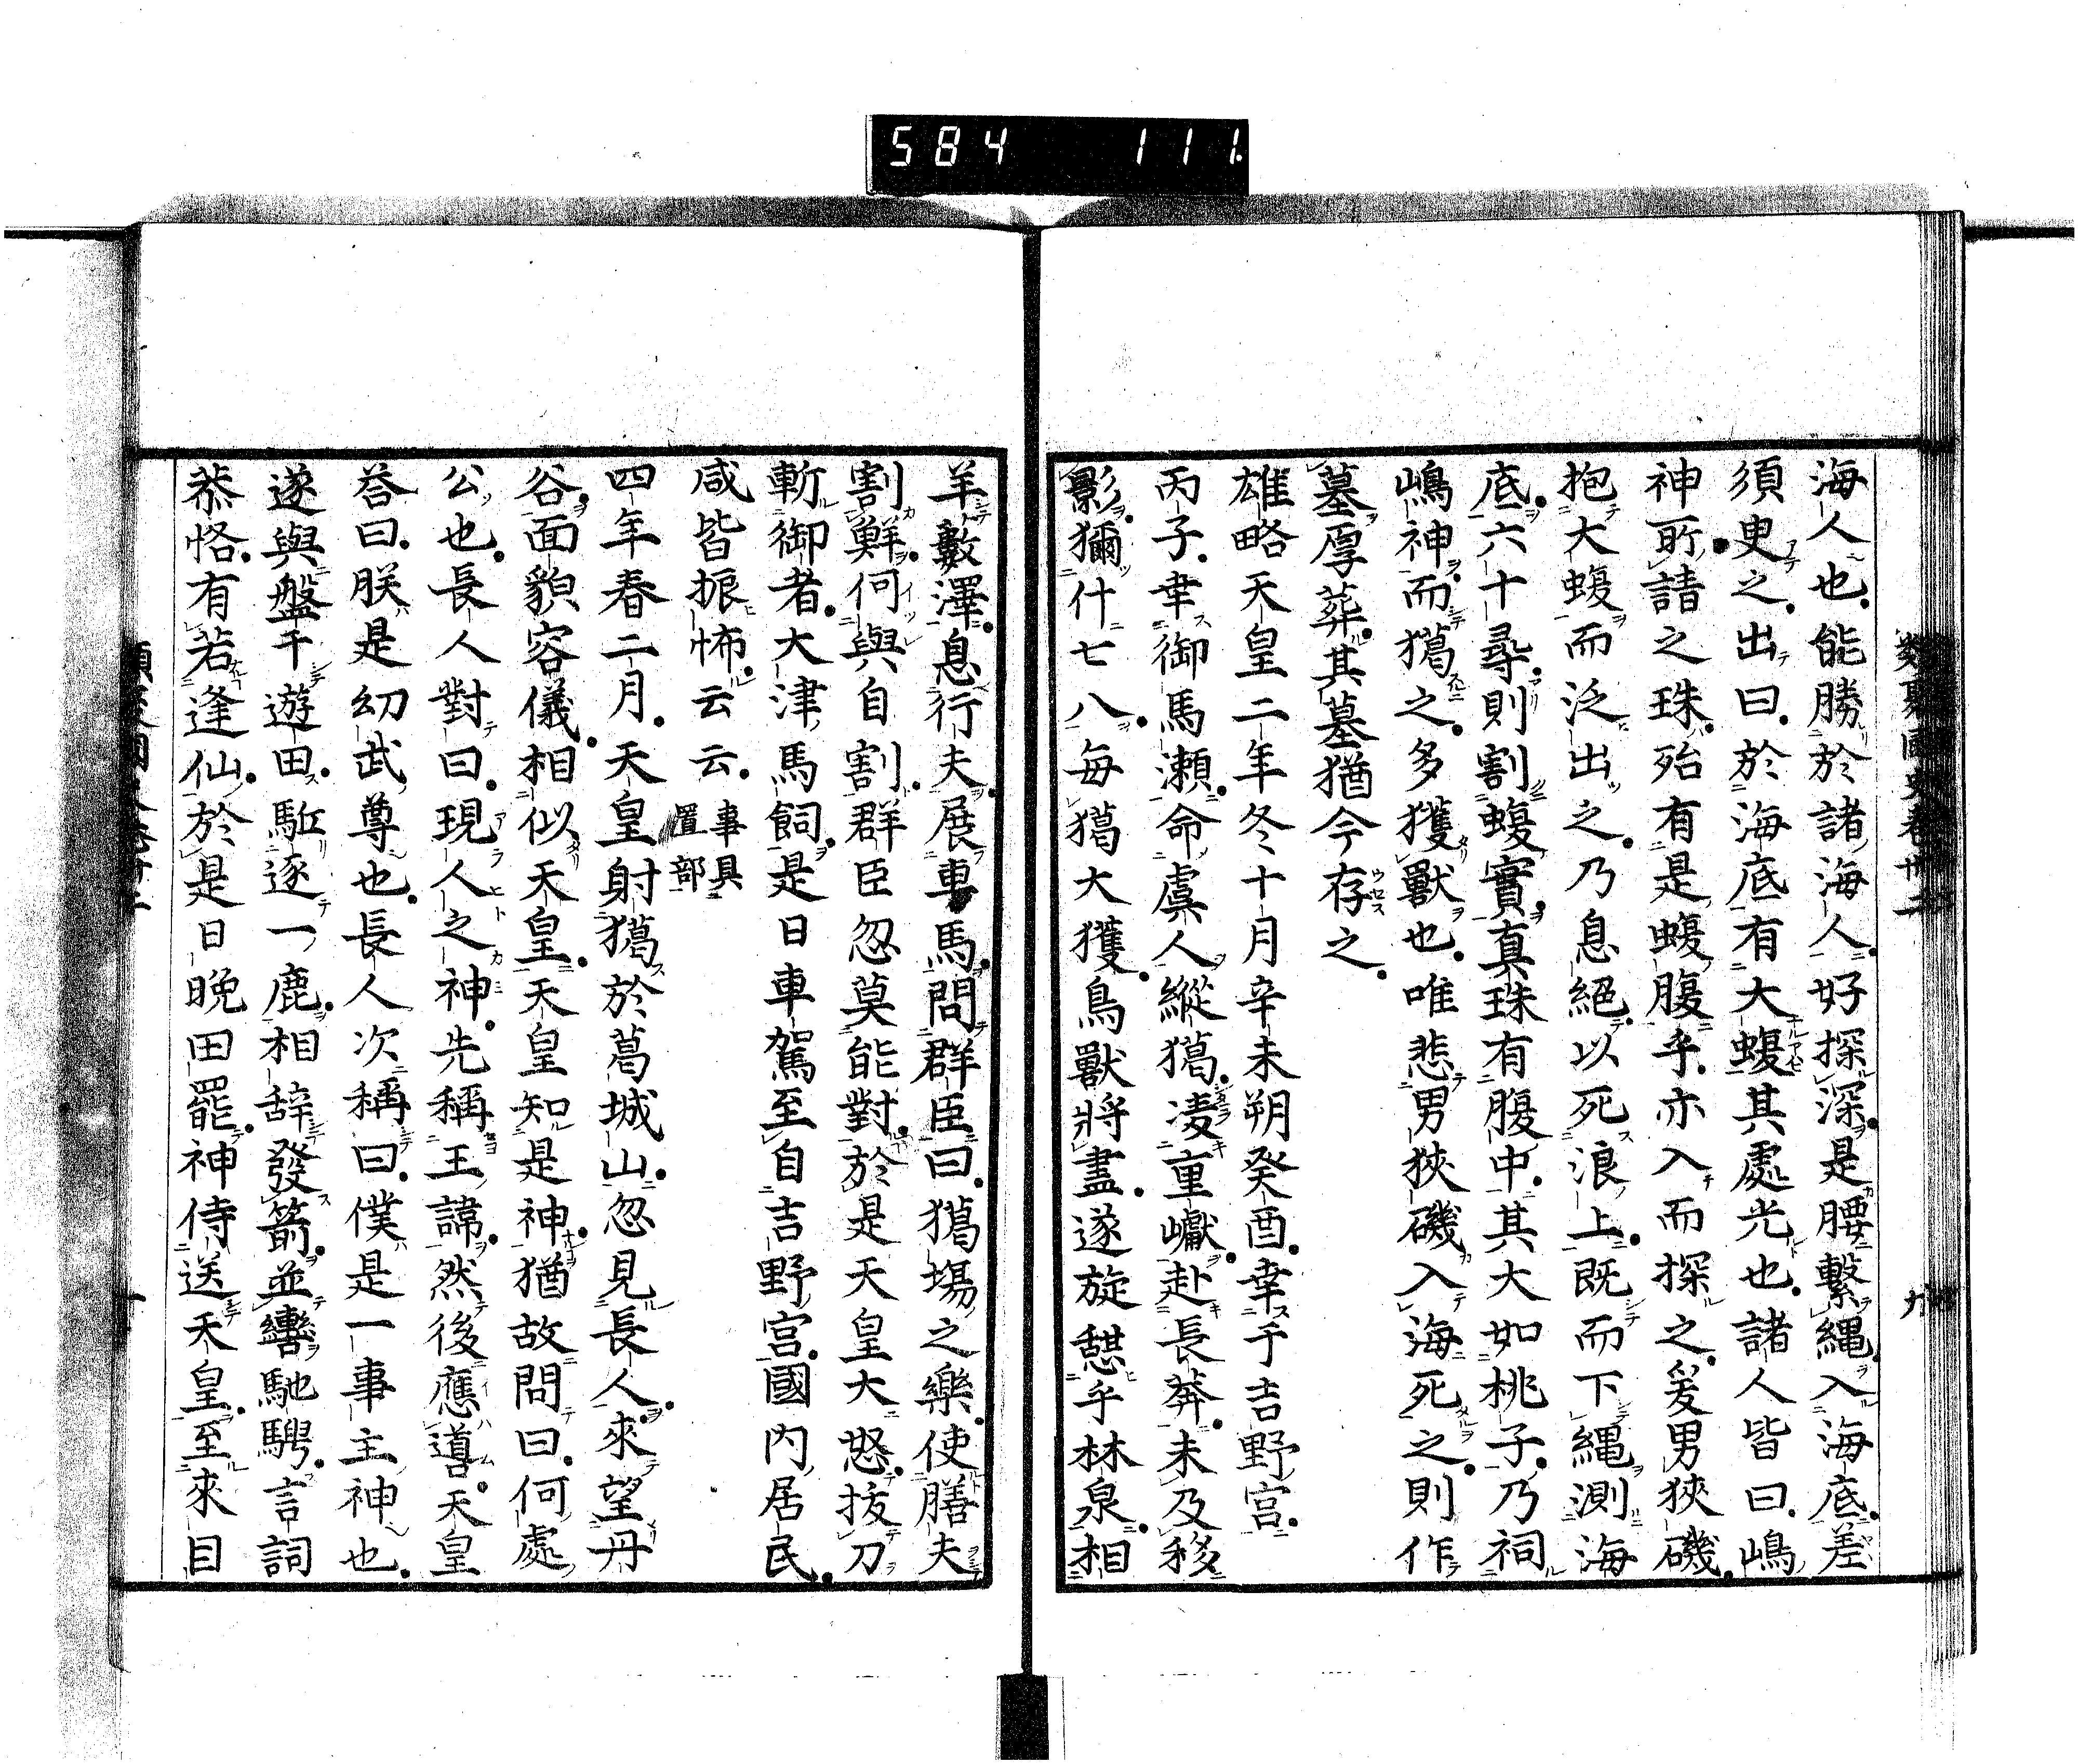 584 111
海人也能勝於諸海人好探深是腰繋縄入海底差
須臾之出曰於海底有大蝮其處光也諸人皆曰嶋
神所請之珠殆有是蝮腹乎亦入而探之爰男狹磯
抱大蝮而泛出之乃息絕以死浪上既而下縄測海
底六十尋則割蝮實真珠有腹中其大如桃子乃祠
嶋神而獦之多獲獸也唯悲男狹磯入海死之則作
墓厚葬其墓猶今存之
雄略天皇二年冬十月辛未朔癸酉幸于吉野宮
丙子幸御馬瀨命虞人縱獦凌重巘赴長莽未及移
影獮什七八每獦大獲鳥獸將盡遂旋憇乎林泉相
羊藪澤息行夫展車馬問群臣曰獦場之樂使膳夫
割鮮何與自割群臣忽莫能對於是天皇大怒拔刀
斬御者大津馬飼是日車駕至自吉野宮國內居民
咸皆振怖云云 事具置部
四年春二月天皇射獦於葛城山忽見長人來望丹
谷面貌容儀相似天皇天皇知是神猶故問曰何處
公也長人對曰現人之神先稱王諱然後應噵天皇
答曰朕是幼武尊也長人次稱曰僕是一事主神也
遂與盤于遊田駈逐一鹿相辞發箭並轡馳騁言詞
恭恪有若逢仙於是日晚田罷神侍送天皇至來目